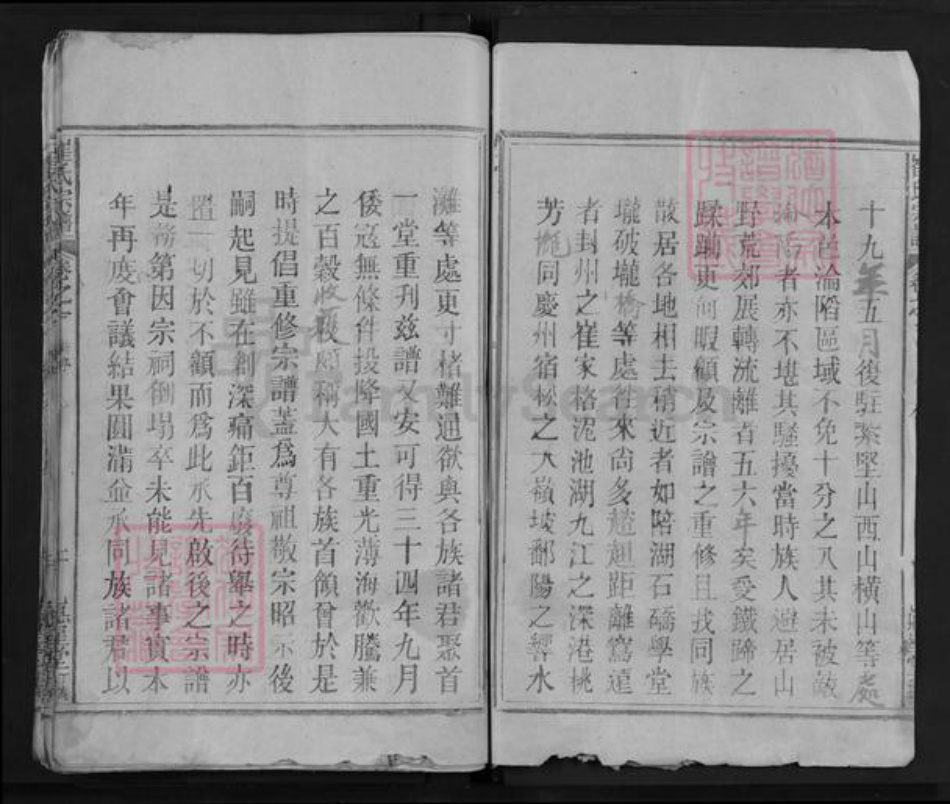 十九年五月復駐紮堅山西山橫山等處
本邑淪陷區域不免十分之八其未被敵
淪陷者亦不堪其騷擾當時族人避居山
野荒郊展轉流離者五六年矣受鐵蹄之
蹂躪更何暇顧及宗譜之重修且我同族
散居各地相去稍近者如陪湖石礄學堂
壠破壠橋等處往來尚多趑趄距離寫遠
者封州之崔家格泥池湖九江之深港桃
芳 同慶州宿松之大嶺坡鄱陽之響水
灘等處更寸楮難通欲與各族諸君聚首
一堂重刋兹譜又安可得三十四年九月
倭寇無條件投降國土重光薄海歡騰兼
之百穀收穫頗稱大有各族首領曾於是
時提倡重修宗譜蓋爲尊祖敬宗昭示後
嗣起見雖在創深痛鉅百廢待舉之時亦
置一切於不顧而爲此承先啟後之宗譜
是務第因宗祠倒塌卒未能見諸事實本
年再度會議結果圓滿僉承同族諸君以
崔氏宗譜
FamilySearch